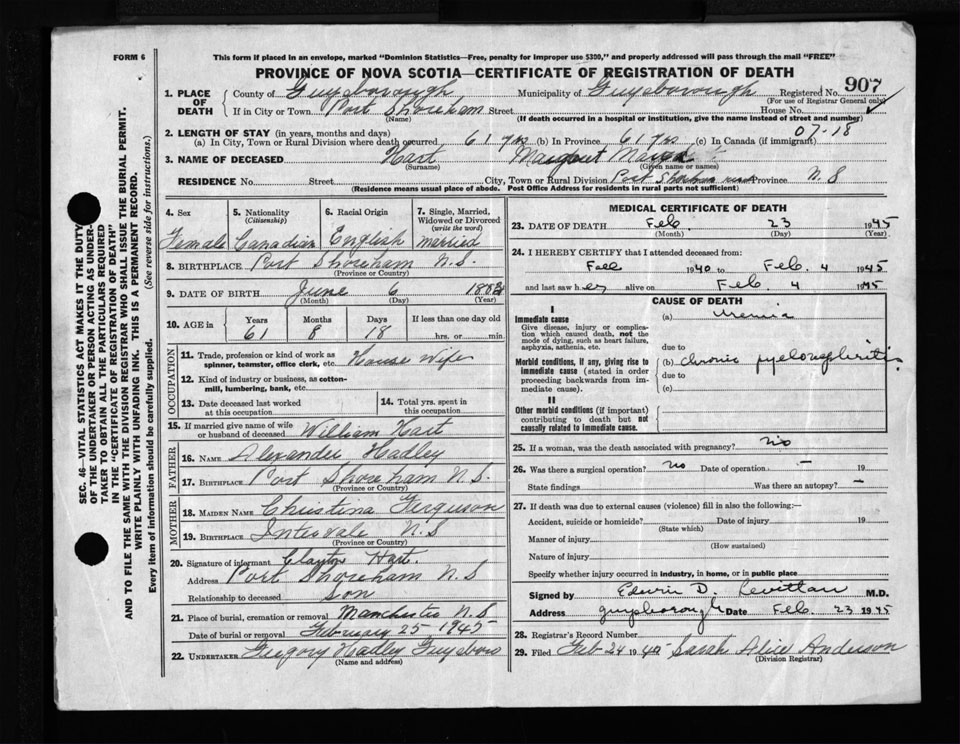 FORM 6
This form if placed in an envelope, marked "Dominion Statistics—Free, penalty for improper use $300," and properly addressed will pass through the mail "FREE"
PROVINCE OF NOVA SCOTIA—CERTIFICATE OF REGISTRATION OF DEATH
907
1. PLACE OF DEATH County of Guysborough Municipality of Guysborough Registered No.
(For use of Registrar General only)
If in City or Town Port Shoreham Street House No.
(Name) (If death occurred in a hospital or institution, give the name instead of street and number)
2. LENGTH OF STAY (in years, months and days) 07-18
(a) In City, Town or Rural Division where death occurred 61 yrs (b) In Province 61 yrs (c) In Canada (if immigrant)
3. NAME OF DECEASED Hart Margaret
(Surname) (Given name or names)
RESIDENCE No. Street City, Town or Rural Division Port Shoreham Province N.S
(Residence means usual place of abode. Post Office Address for residents in rural parts not sufficient)
4. Sex Female
5. Nationality (Citizenship) Canadian
6. Racial Origin English
7. Single, Married, Widowed or Divorced (write the word) married
8. BIRTHPLACE Port Shoreham N.S.
(Province or Country)
9. DATE OF BIRTH June 6 1883
(Month) (Day) (Year)
10. AGE in Years Months Days If less than one day old
61 8 18 hrs. or min.
OCCUPATION
11. Trade, profession or kind of work as spinner, teamster, office clerk, etc. House Wife
12. Kind of industry or business, as cotton-mill, lumbering, bank, etc.
13. Date deceased last worked at this occupation
14. Total yrs. spent in this occupation
15. If married give name of wife or husband of deceased William Hart
FATHER
16. NAME Alexander Hadley
17. BIRTHPLACE Port Shoreham N.S.
(Province or Country)
MOTHER
18. MAIDEN NAME Christina Ferguson
19. BIRTHPLACE Intervale N.S
(Province or Country)
20. Signature of informant Clayton Hart.
Address Port Shoreham N.S
Relationship to deceased Son
21. Place of burial, cremation or removal Manchester N.S
Date of burial or removal February 25 1945
22. UNDERTAKER Gregory Hadley Guysboro
(Name and address)
MEDICAL CERTIFICATE OF DEATH
23. DATE OF DEATH Feb. 23 1945
(Month) (Day) (Year)
24. I HEREBY CERTIFY that I attended deceased from:
Fall 1940 to Feb. 4 1945
and last saw her alive on Feb 4 1945
CAUSE OF DEATH
I
Immediate cause (a) Uremia
Give disease, injury or complication which caused death, not the mode of dying, such as heart failure, asphyxia, asthenia, etc.
due to
Morbid conditions, if any, giving rise to immediate cause (stated in order proceeding backwards from immediate cause).
(b) chronic pyelonephritis
due to
(c)
II
Other morbid conditions (if important) contributing to death but not causally related to immediate cause.
25. If a woman, was the death associated with pregnancy? no
26. Was there a surgical operation? no Date of operation — 19
State findings Was there an autopsy? —
27. If death was due to external causes (violence) fill in also the following:—
Accident, suicide or homicide? Date of injury 19
(State which)
Manner of injury
(How sustained)
Nature of injury
Specify whether injury occurred in industry, in home, or in public place
Signed by Edwin D. M.D.
Address guysborough Date Feb. 23 1945
28. Registrar's Record Number
29. Filed Feb 24 1945 Sarah Alice Anderson
(Division Registrar)
SEC. 46—VITAL STATISTICS ACT MAKES IT THE DUTY
OF THE UNDERTAKER OR PERSON ACTING AS UNDER-
TAKER TO OBTAIN ALL THE PARTICULARS REQUIRED
IN THE "CERTIFICATE OF REGISTRATION OF DEATH"
AND TO FILE THE SAME WITH THE DIVISION REGISTRAR WHO SHALL ISSUE THE BURIAL PERMIT.
WRITE PLAINLY WITH UNFADING INK. THIS IS A PERMANENT RECORD.
Every item of information should be carefully supplied. (See reverse side for instructions.)